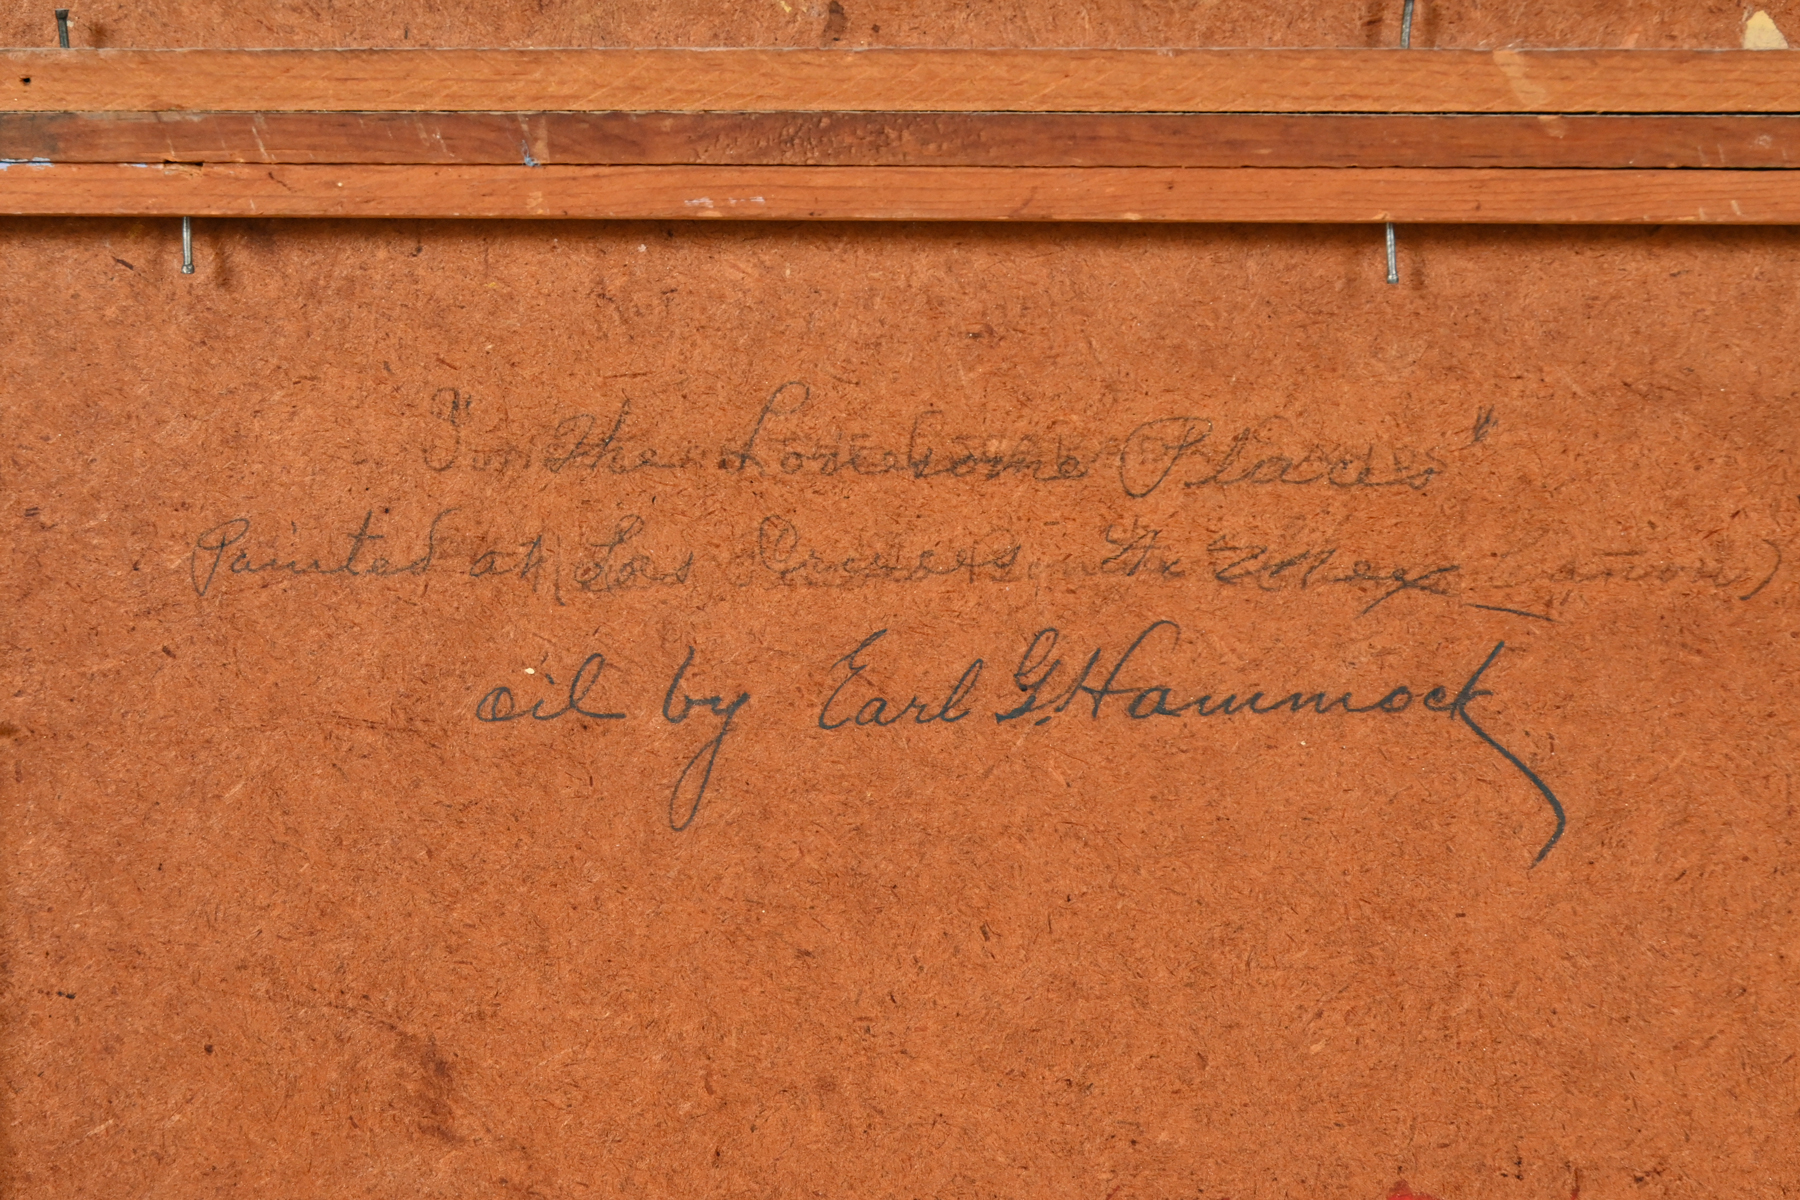 "In the Lonesome Places"
Painted at Las Cruces N. Mex
oil by Earl G. Hammock